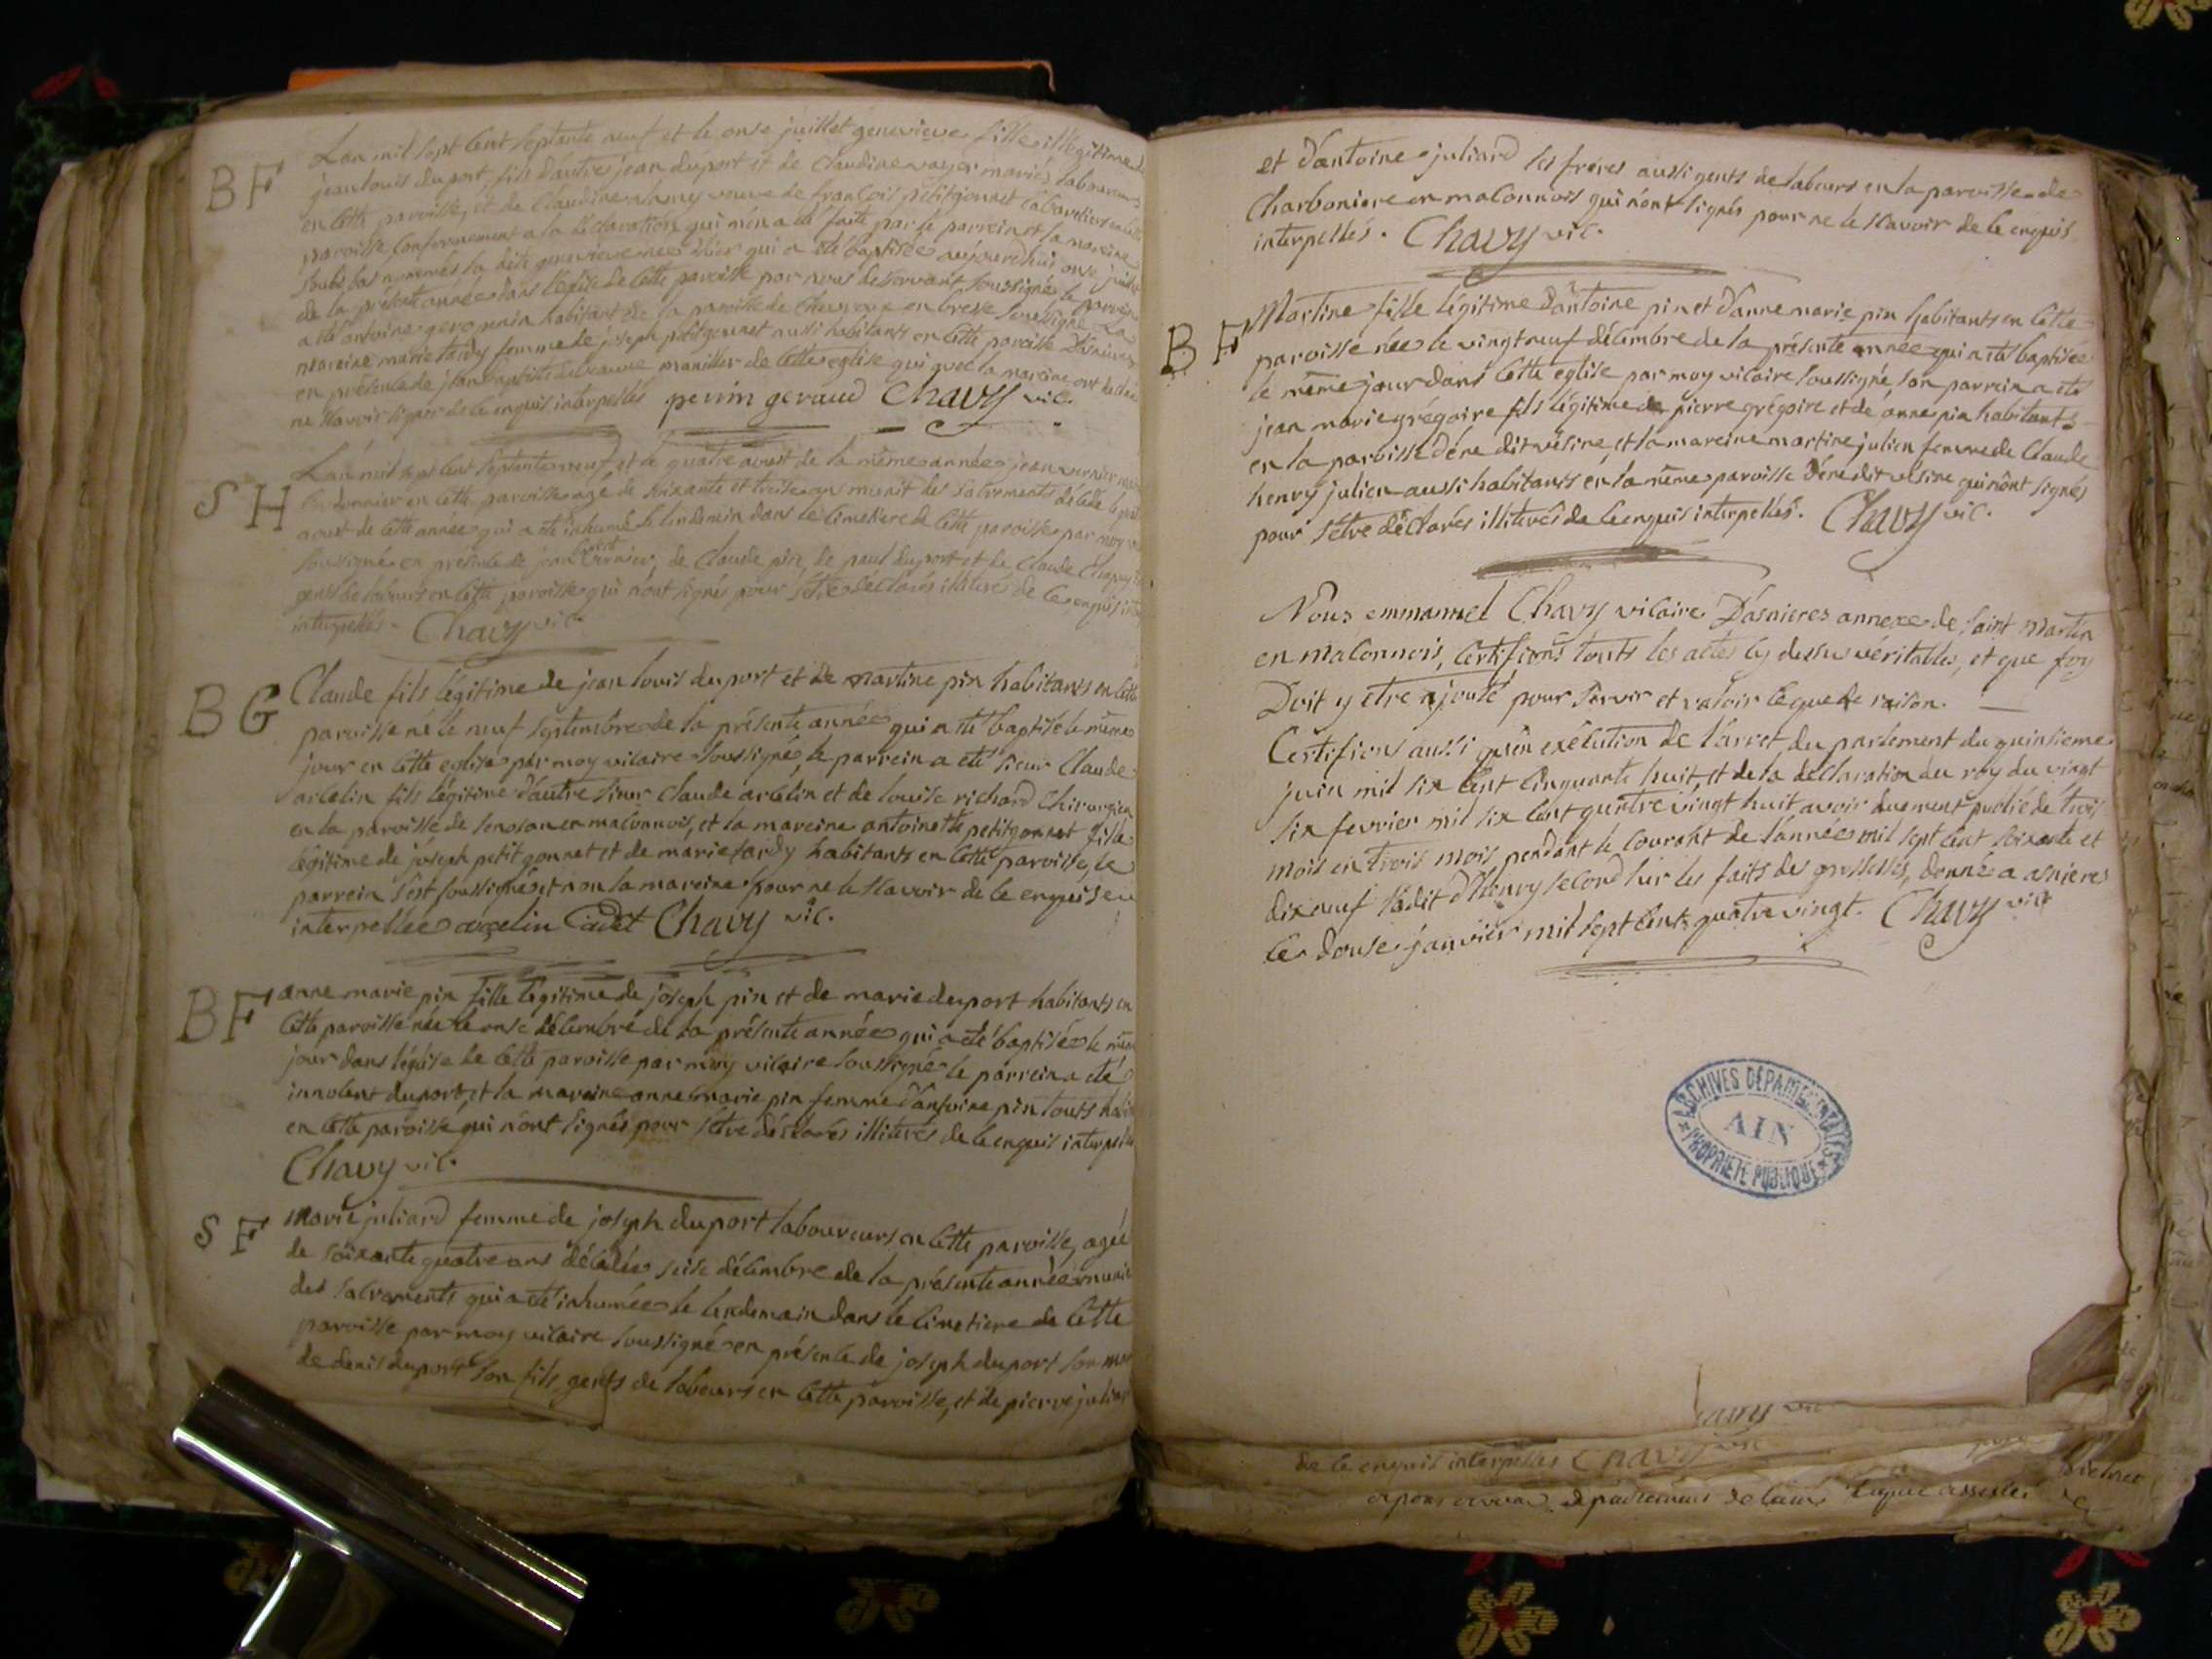 BF
L'an mil sept cent septante neuf et le onse juillet genevieve fille illégitime de
jean louis duport, fils d'autre jean duport et de Claudine voyer mariés laboureurs
en cette paroisse, et de Claudine veuve de françois petitgonnet cabaretiers en cette
paroisse conformement a la déclaration qui m'en a été faite par le parrein et la mareine
soubs bas nommés la dite genevieve née hier qui a été baptisée aujourd'hui onse juillet
de la présente année dans l'église de cette paroisse par nous desservant soussigné le parrein
a été antoine perin habitant de la paroisse de en bresse soussigné La
mareine marie tardy femme de joseph petitgonnet aussi habitants en cette paroisse D'asnieres
en présence de jean baptiste manillier de cette eglise qui avec la mareine ont déclaré
ne sçavoir signer de ce enquis interpellés perrin geraud Chavy vic.
SH
L'an mil sept cent septante neuf, et le quatre aoust de la même année jean vernier
en cette paroisse agé de soixante et treise ans munit des sacrements décédé le
aoust de cette année qui a été inhumé le lendemain dans le cimetiere de cette paroisse par moy
soussigné en présence de jean vernier, de Claude pin, de paul duport et de Claude
gents de labeurs en cette paroisse qui n'ont signés pour s'être déclarés illiterés de ce enquis
interpellés. Chavy vic.
BG
Claude fils légitime de jean louis duport et de martine pin habitants en cette
paroisse né le neuf septembre de la présente année qui a été baptisé le même
jour en cette eglise par moy vicaire soussigné, le parrein a été sieur Claude
arcelin fils légitime d'autre sieur Claude arcelin et de louise richard Chirurgien
en la paroisse de senosan en maconnois, et la mareine antoinette petitgonnet fille
légitime de joseph petitgonnet et de marie tardy habitants en cette paroisse, le
parrein s'est soussigné et non la mareine pour ne le sçavoir de ce enquise
interpellée arcelin Cadet Chavy vic.
BF
anne marie pin fille légitime de joseph pin et de marie duport habitants en
cette paroisse née le onse décembre de la présente année qui a été baptisée le même
jour dans l'église de cette paroisse par moy vicaire soussigné le parrein a été
innocent duport, et la mareine anne marie pin femme d'antoine pin touts
en cette paroisse qui n'ont signés pour s'être déclarés illiterés de ce enquis interpellés
Chavy vic.
SF
Marie juliard femme de joseph duport laboureurs en cette paroisse, agée
de soixante quatre ans décédée seise décembre de la présente année munie
des sacrements qui a été inhumée le lendemain dans le cimetiere de cette
paroisse par moy vicaire soussigné en présence de joseph duport son
de denis duport son fils, gents de labeurs en cette paroisse, et de pierre juliard
et d'antoine juliard ses freres aussi gents de labeurs en la paroisse de
Charboniere en maconnois qui n'ont signés pour ne le sçavoir de ce enquis
interpellés. Chavy vic.
BF
Martine fille légitime d'antoine pin et d'anne marie pin habitants en cette
paroisse née le vingt neuf décembre de la présente année qui a été baptisée
le même jour dans cette eglise par moy vicaire soussigné, son parrein a été
jean marie grégoire fils légitime de pierre grégoire et de anne pin habitants
en la paroisse d'éne dit vésine, et la mareine martine julien femme de Claude
henry julien aussi habitants en la même paroisse d'éne dit vésine qui n'ont signés
pour s'être déclarés illiterés de ce enquis interpellés. Chavy vic.
Nous emmanuel Chavy vicaire D'asnieres annexe de saint Martin
en maconnois, Certifions touts les actes cy dessus véritables, et que foy
Doit y etre ajouté pour servir et valoir ce que de raison.
Certifions aussi qu'en exécution de l'arret du parlement du quinsieme
juin mil six cent cinquante huit, et de la déclaration du roy du vingt
six fevrier mil six cent quatre vingt huit, avoir duement publié de trois
mois en trois mois pendant le courant de l'année mil sept cent soixante et
dixneuf l'édit d'Henry second sur les faits des grossesses, donné a asnieres
ce douse janvier mil sept cents quatre vingt. Chavy vic.
ARCHIVES DÉPARTEMENTALES
AIN
PROPRIÉTÉ PUBLIQUE
de ce enquis interpellés Chavy vic